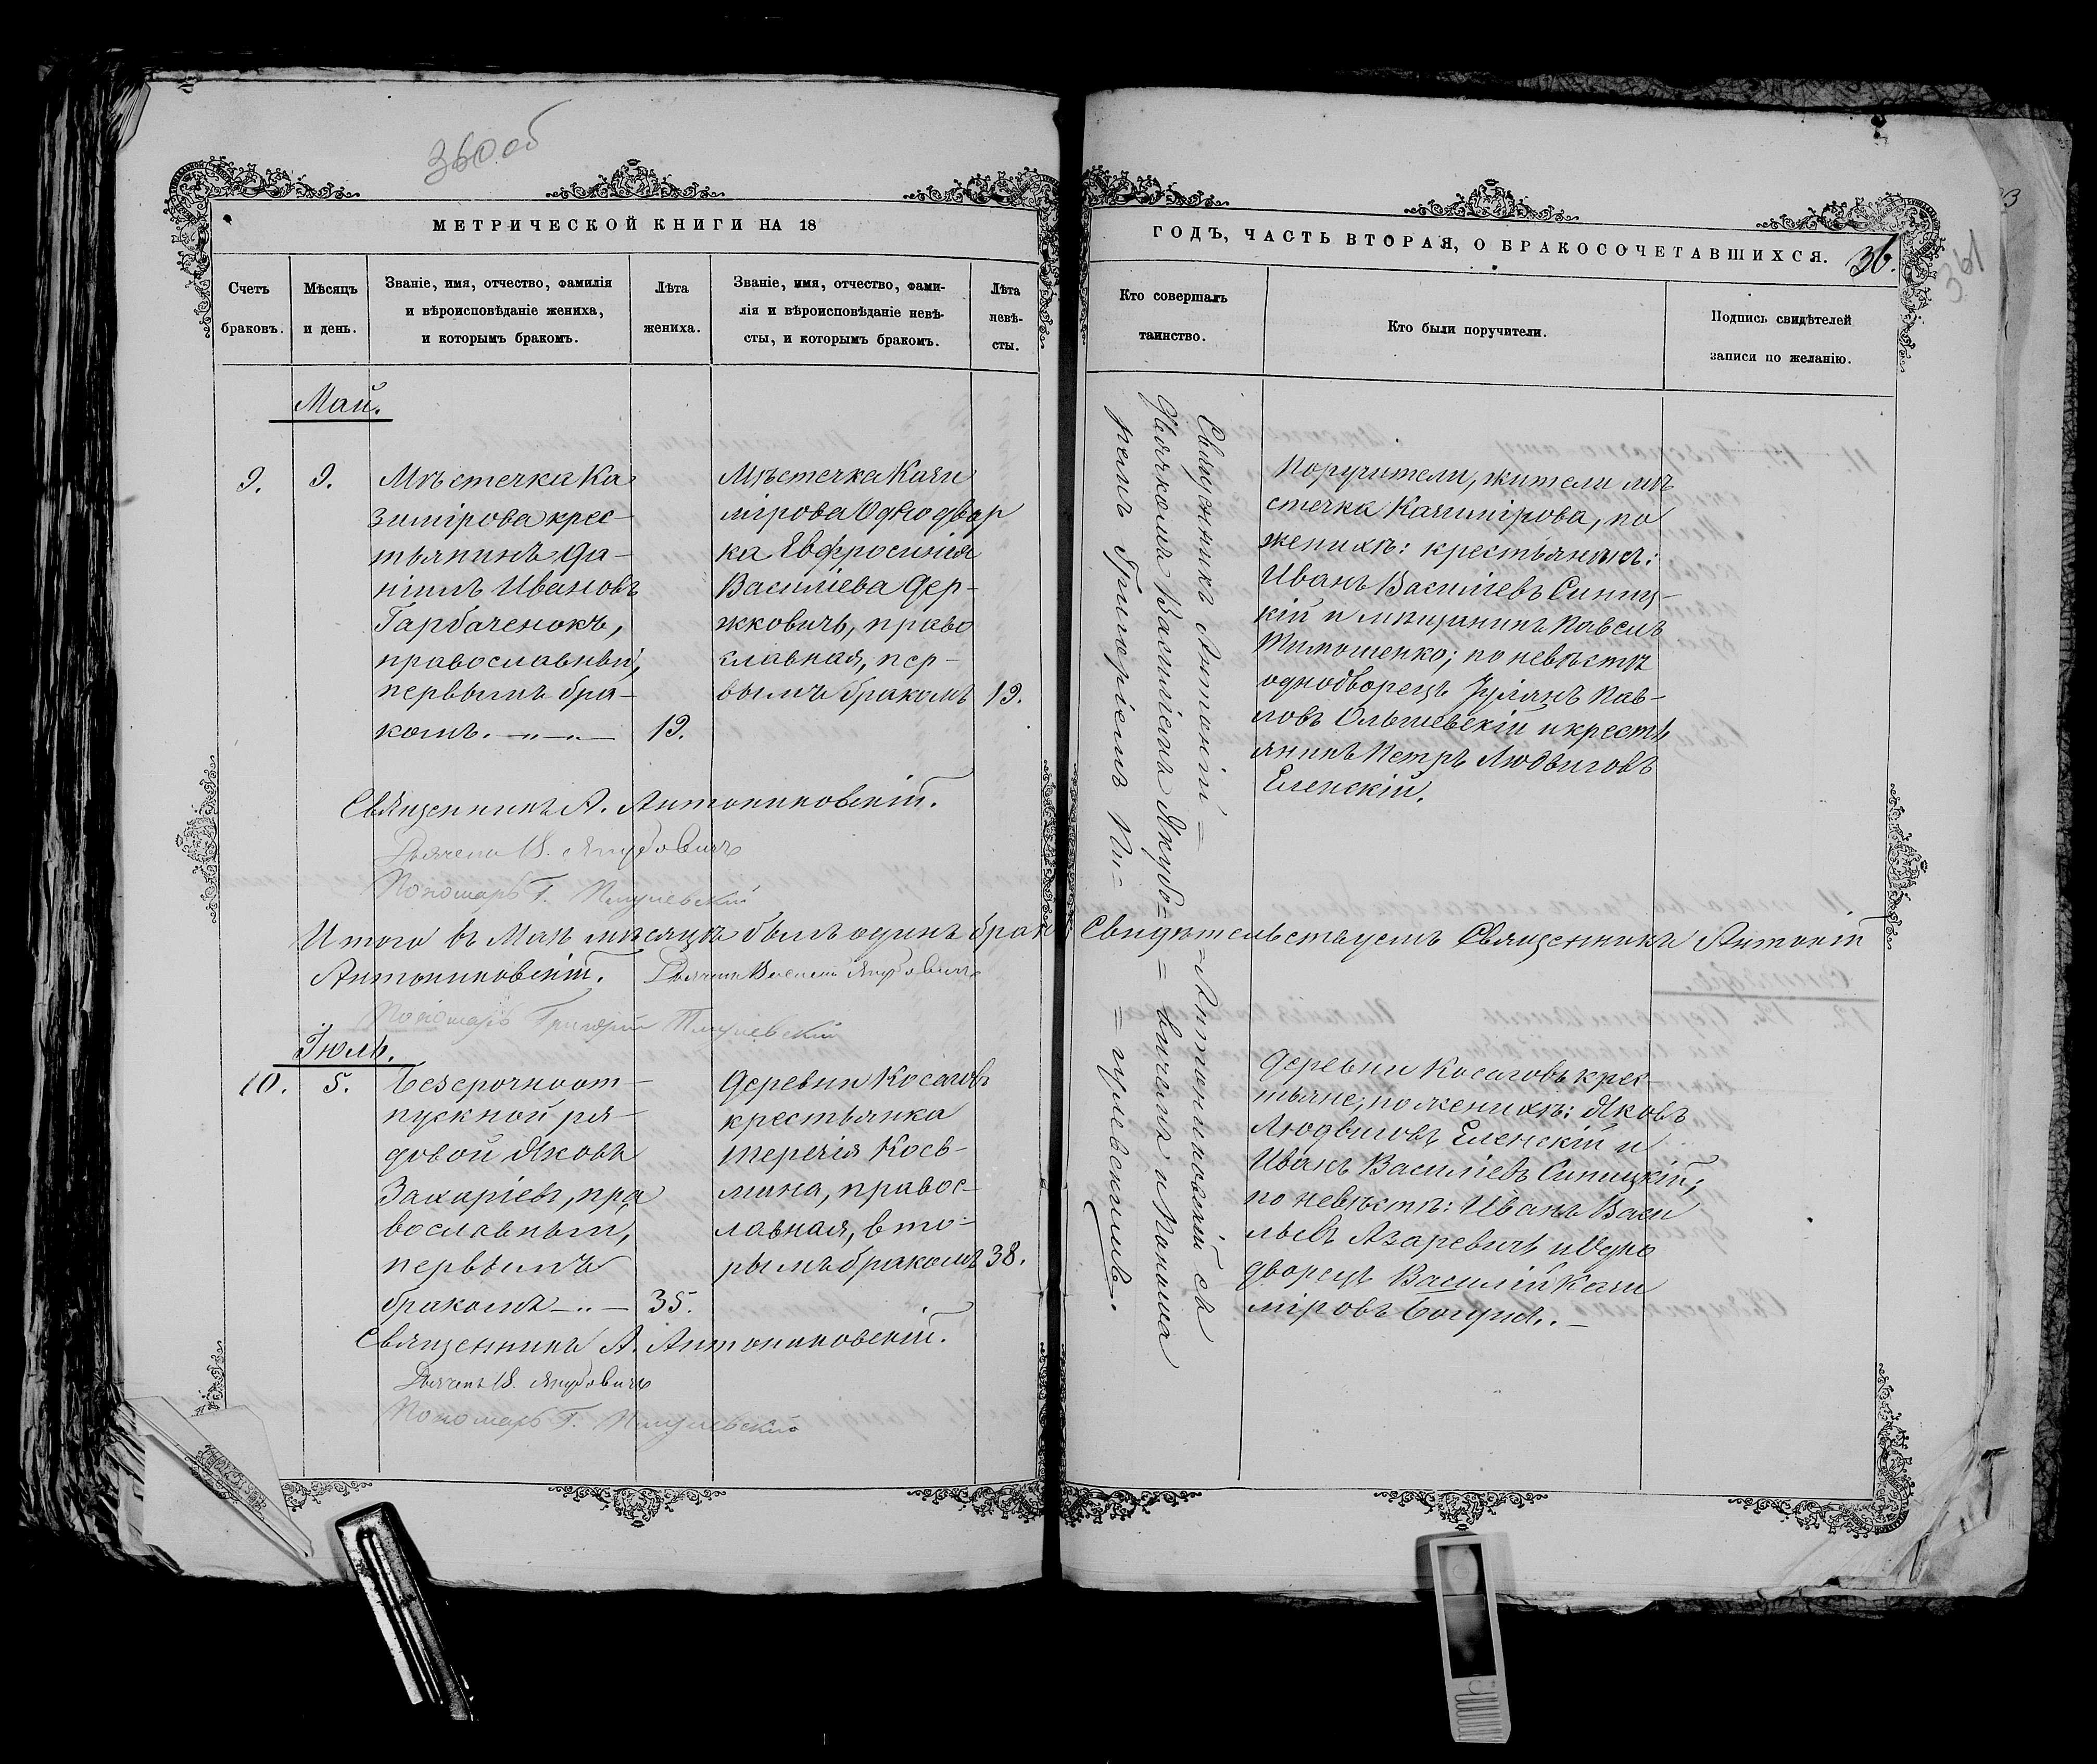 360 об
МЕТРИЧЕСКОЙ КНИГИ НА 18
Счетъ браковъ.
Мѣсяцъ и день.
Званіе, имя, отчество, фамилія
и вѣроисповѣданіе жениха,
и которымъ бракомъ.
Лѣта жениха.
Званіе, имя, отчество, фами-
лія и вѣроисповѣданіе невѣ-
сты, и которымъ бракомъ.
Лѣта
невѣ-
сты.
Май.
9.
9.
Мѣстечка Ка
зимірова крес-
тьянинъ Да-
ніилъ Ивановъ
Гарбаченокъ,
православный,
первымъ бра-
комъ.
19.
Мѣстечка Кази
мірова Однодвор
ка Евфросинія
Василіева Дер-
жковичъ, право
славная, пер-
вымъ бракомъ
19.
Священникъ А. Антониковскій.
Дьячекъ В. Якубовичъ
Пономарь Г. Пигулевскій
Итого въ Маѣ мѣсяцѣ былъ одинъ бракъ
Антониковскій. Дьячекъ Василій Якубовичъ
Пономарь Григорій Пигулевскій
Іюль.
10.
5.
Безсрочноот-
пускной ря-
довой Яковъ
Захаріевъ, пра
вославный,
первымъ
бракомъ
35.
Деревни Косаговъ
крестьянка
Терезія Кось-
мина, правос-
лавная, вто-
рымъ бракомъ
38.
Священникъ А. Антониковскій.
Дьячекъ В. Якубовичъ
Пономарь Г. Пигулевскій
ГОДЪ, ЧАСТЬ ВТОРАЯ, О БРАКОСОЧЕТАВШИХСЯ.
36.
361
Кто совершалъ
таинство.
Кто были поручители.
Подпись свидѣтелей
записи по желанію.
Священникъ Антоній = Антониковскій съ
Дьячкомъ Василіемъ Якубо= = вичемъ и Понома
ремъ Григоріемъ Пи= = гулевскимъ.
Поручители, жители мѣ
стечка Казимірова, по
женихѣ: крестьянинъ:
Иванъ Василіевъ Синиц-
кій и мѣщанинъ Павелъ
Тимошенко; по невѣстѣ
однодворецъ Іуліанъ Пав-
ловъ Ольшевскій и кресть
янинъ Петръ Людвиговъ
Еленскій.
Свидѣтельствуемъ Священникъ Антоній
Деревни Косаговъ крес-
тьяне, по женихѣ: Яковъ
Людвиговъ Еленскій и
Иванъ Василіевъ Синицкій;
по невѣстѣ: Иванъ Васи
льевъ Азаревичъ и Одно
дворецъ Василій Кази
міровъ